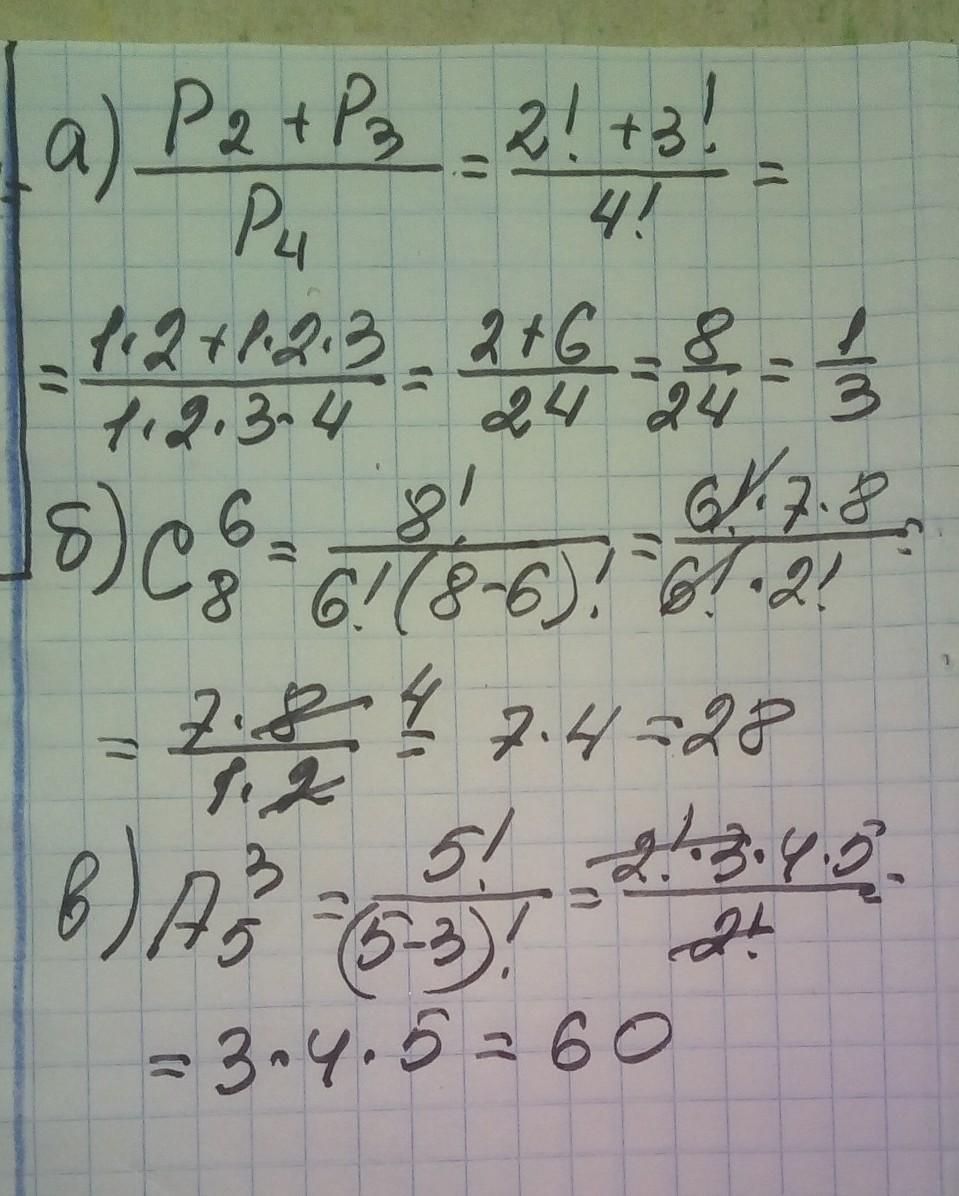 а) (P₂ + P₃)/P₄ = (2! + 3!)/4! =
= (1·2+1·2·3)/(1·2·3·4) = (2+6)/24 = 8/24 = 1/3
б) C₈⁶ = 8!/(6!(8-6)!) = (6!·7·8)/(6!·2!) =
= (7·8)/(1·2) 4 = 7·4 = 28
в) A₅³ = 5!/(5-3)! = (2!·3·4·5)/2! =
= 3·4·5 = 60